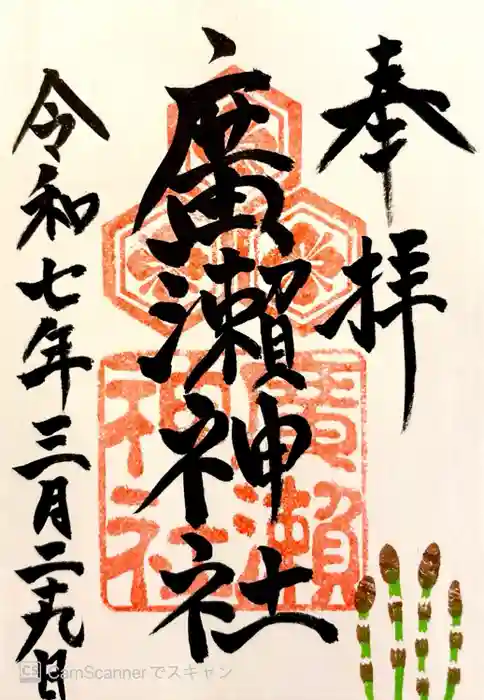 奉拝
廣瀬神社
令和七年三月二十九日
廣瀬
神社
CS CamScannerでスキャン